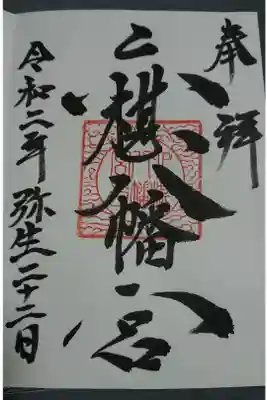 奉拝
八幡宮
令和二年 弥生二十二日